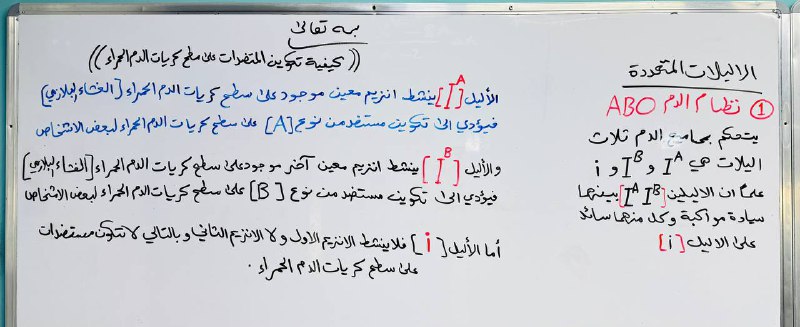 بسمه تعالى
الاليلات المتعددة
① نظام الدم ABO
يتحكم بمجاميع الدم ثلاث
اليلات هي I^A و I^B و i
علماً ان الاليلين [I^A I^B] بينهما
سيادة مواكبة وكل منهما سائد
على الاليل [i]
((كيفية تكوين المتضدات على سطح كريات الدم الحمراء))
الأليل [I^A] ينشط انزيم معين موجود على سطح كريات الدم الحمراء [الغشاء البلازمي]
فيؤدي الى تكوين مستضد من نوع [A] على سطح كريات الدم الحمراء لبعض الاشخاص
والأليل [I^B] ينشط انزيم معين آخر موجود على سطح كريات الدم الحمراء [الغشاء البلازمي]
فيؤدي الى تكوين مستضد من نوع [B] على سطح كريات الدم الحمراء لبعض الاشخاص
أما الأليل [i] فلا ينشط الانزيم الاول ولا الانزيم الثاني وبالتالي لا تتكون مستضدات
على سطح كريات الدم الحمراء .